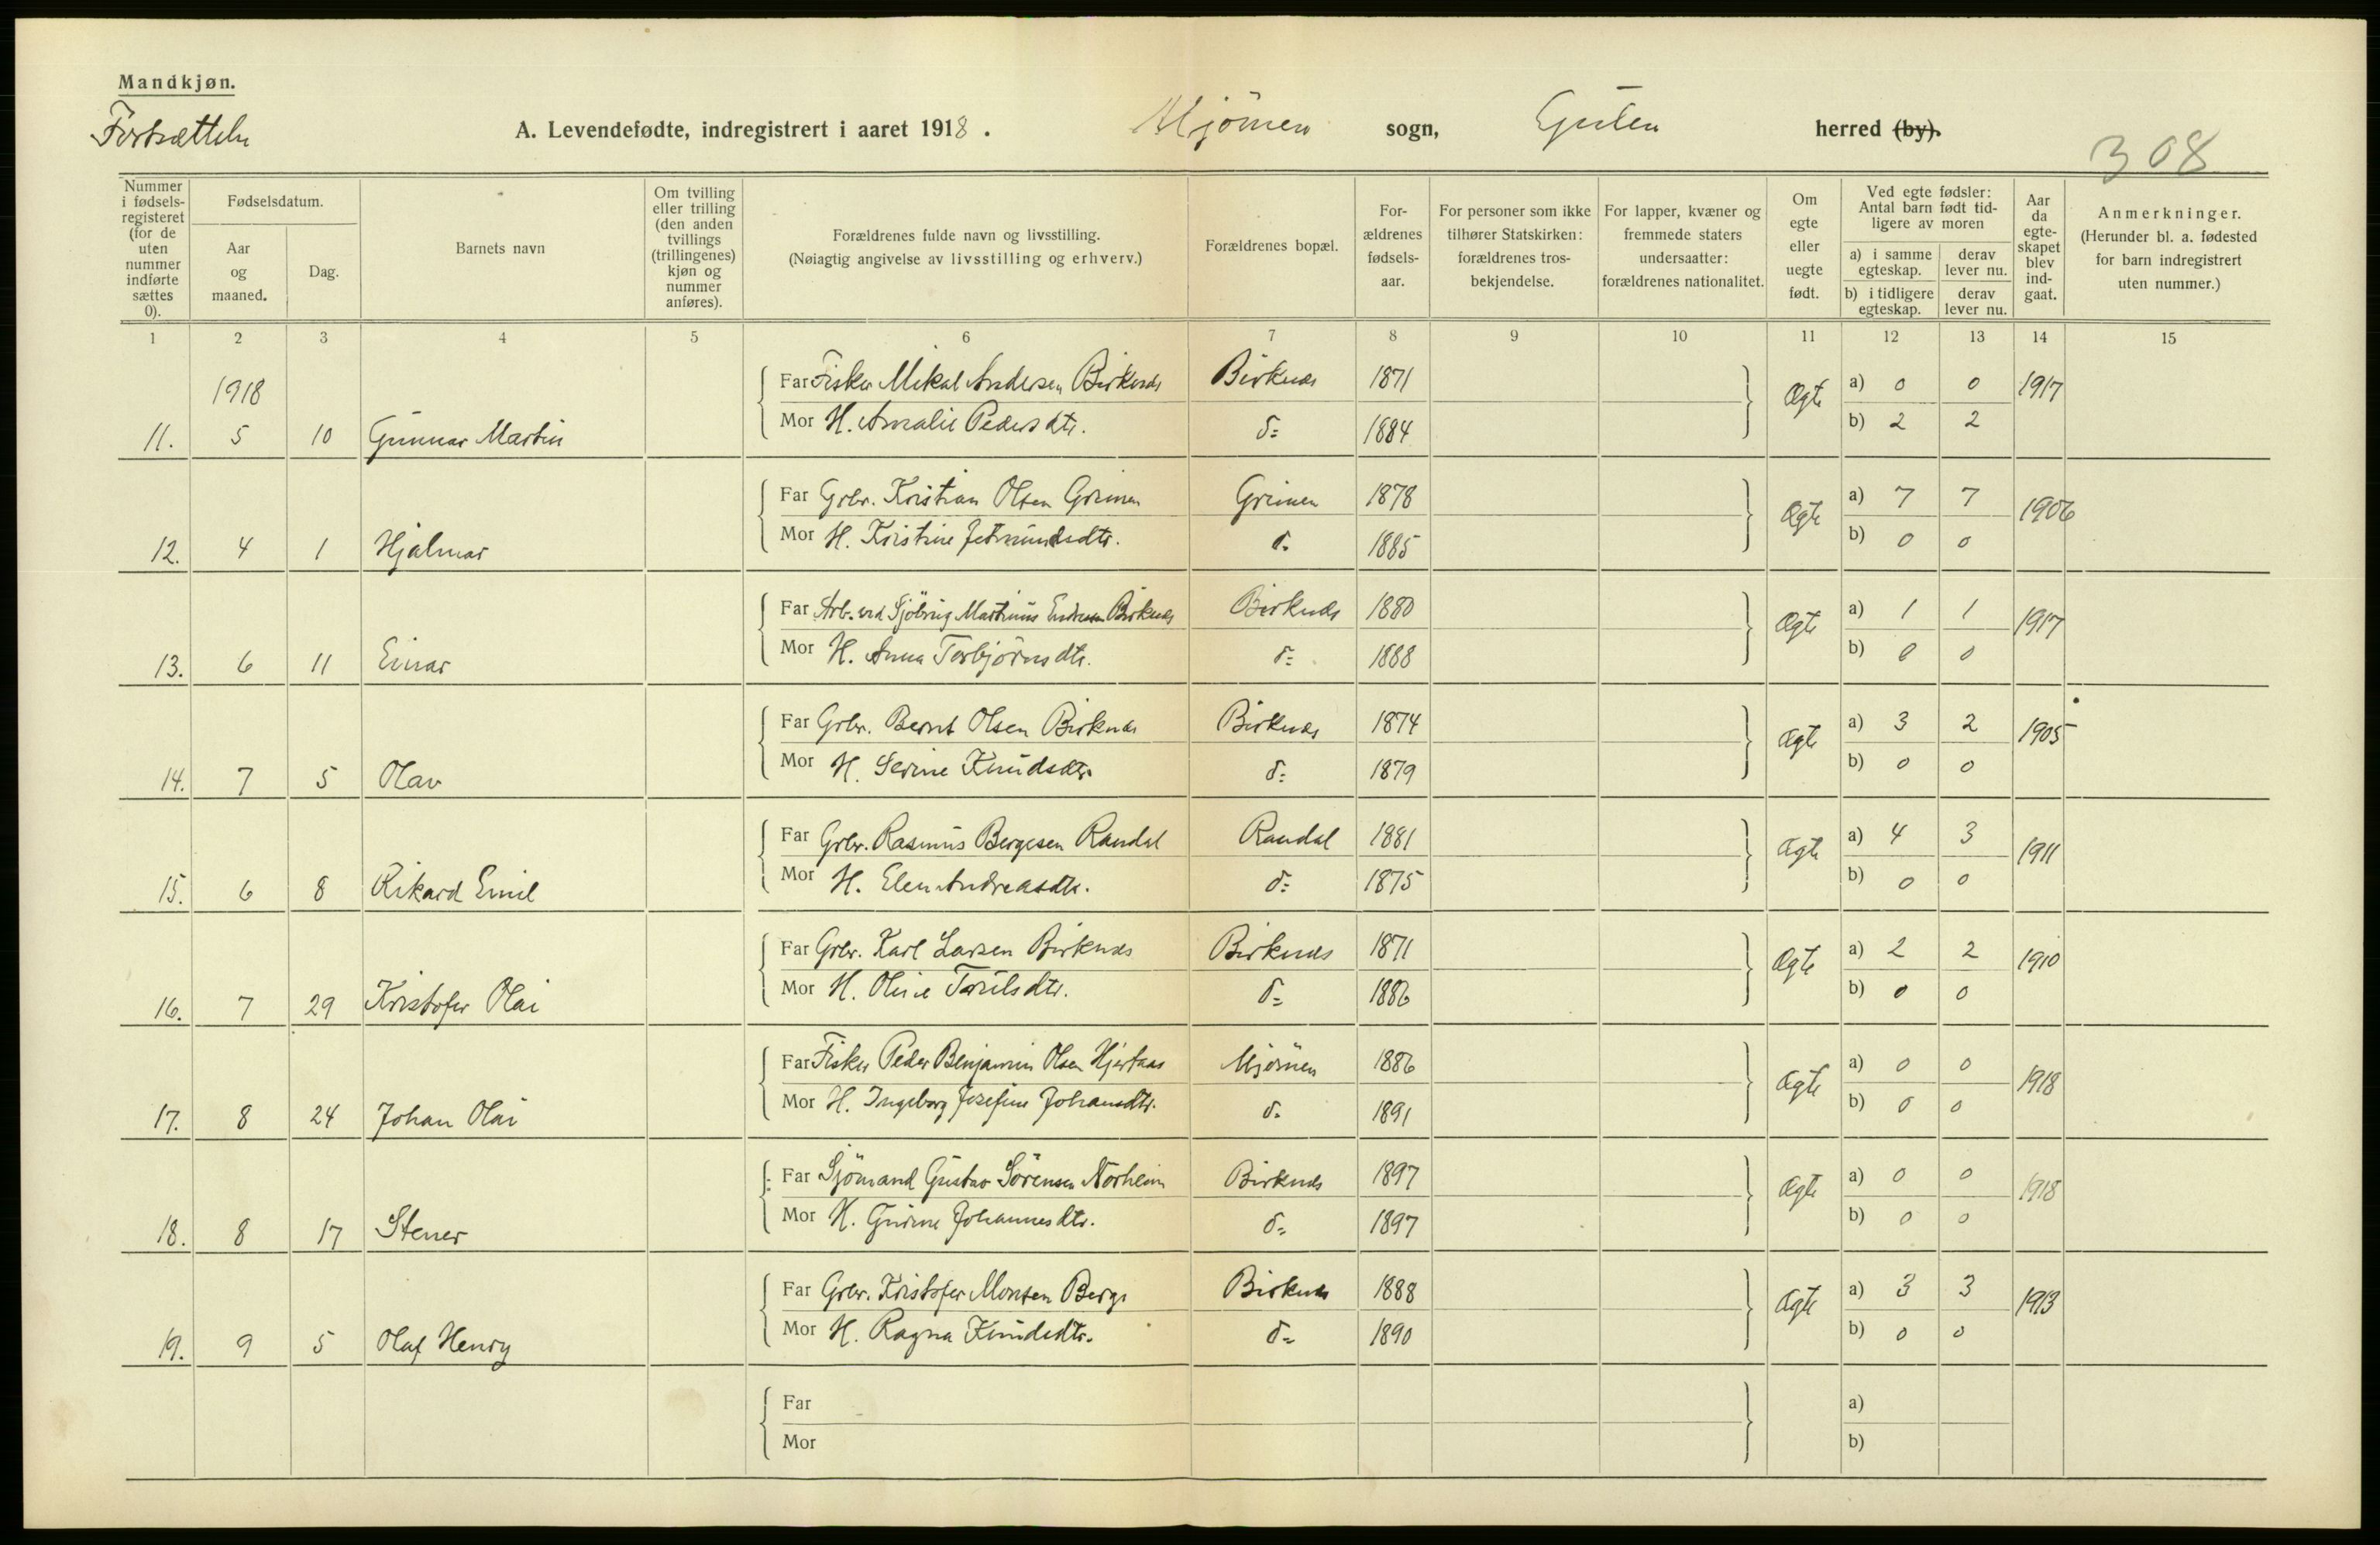 Mandkjøn.
Fortsættelse
A. Levendefødte, indregistrert i aaret 1918. Mjömen sogn, Gulen herred (by).
308
Nummer i fødselsregisteret (for de uten nummer indførte sættes 0).
Fødselsdatum.
Aar og maaned.
Dag.
Barnets navn
Om tvilling eller trilling (den anden tvillings (trillingenes) kjøn og nummer anføres).
Forældrenes fulde navn og livsstilling. (Nøiagtig angivelse av livsstilling og erhverv.)
Forældrenes bopæl.
Forældrenes fødselsaar.
For personer som ikke tilhører Statskirken: forældrenes trosbekjendelse.
For lapper, kvæner og fremmede staters undersaatter: forældrenes nationalitet.
Om egte eller uegte født.
Ved egte fødsler: Antal barn født tidligere av moren
a) i samme egteskap. derav lever nu.
b) i tidligere egteskap. derav lever nu.
Aar da egteskapet blev indgaat.
Anmerkninger. (Herunder bl. a. fødested for barn indregistrert uten nummer.)
1 2 3 4 5 6 7 8 9 10 11 12 13 14 15
1918
Far Fisker Mikal Andersen Birknæs Birknæs 1871 Ægte a) 0 0 1917
11. 5 10 Gunnar Martin Mor H. Amalie Pedersdtr. d= 1884 b) 2 2
Far Grbr. Kristian Olsen Grimen Grimen 1878 Ægte a) 7 7 1906
12. 4 1 Hjalmar Mor H. Kristine Jetmundsdtr. d= 1885 b) 0 0
Far Arb. ved Sjöbrug Martinus Endresen Birknæs Birknæs 1880 Ægte a) 1 1 1917
13. 6 11 Einar Mor H. Anna Torbjörnsdtr. d= 1888 b) 0 0
Far Grbr. Bernt Olsen Birknæs Birknæs 1874 Ægte a) 3 2 1905
14. 7 5 Olav Mor H. Serine Knudsdtr. d= 1879 b) 0 0
Far Grbr. Rasmus Bergesen Randal Randal 1881 Ægte a) 4 3 1911
15. 6 8 Rikard Emil Mor H. Elen Andreasdtr. d= 1875 b) 0 0
Far Grbr. Karl Larsen Birknæs Birknæs 1871 Ægte a) 2 2 1910
16. 7 29 Kristofer Olai Mor H. Oline d= 1886 b) 0 0
Far Fisker Peder Benjamin Olsen Hjertaas Mjömen 1886 Ægte a) 0 0 1918
17. 8 24 Johan Olai Mor H. Ingeborg Josefine Johansdtr. d= 1891 b) 0 0
Far Sjömand Gustav Sörensen Norheim Birknæs 1897 Ægte a) 0 0 1918
18. 8 17 Stener Mor H. Gurine Johannesdtr. d= 1897 b) 0 0
Far Grbr. Kristofer Monsen Berge Birknæs 1888 Ægte a) 3 3 1913
19. 9 5 Olaf Henry Mor H. Ragna Knudsdtr. d= 1890 b) 0 0
Far a)
Mor b)